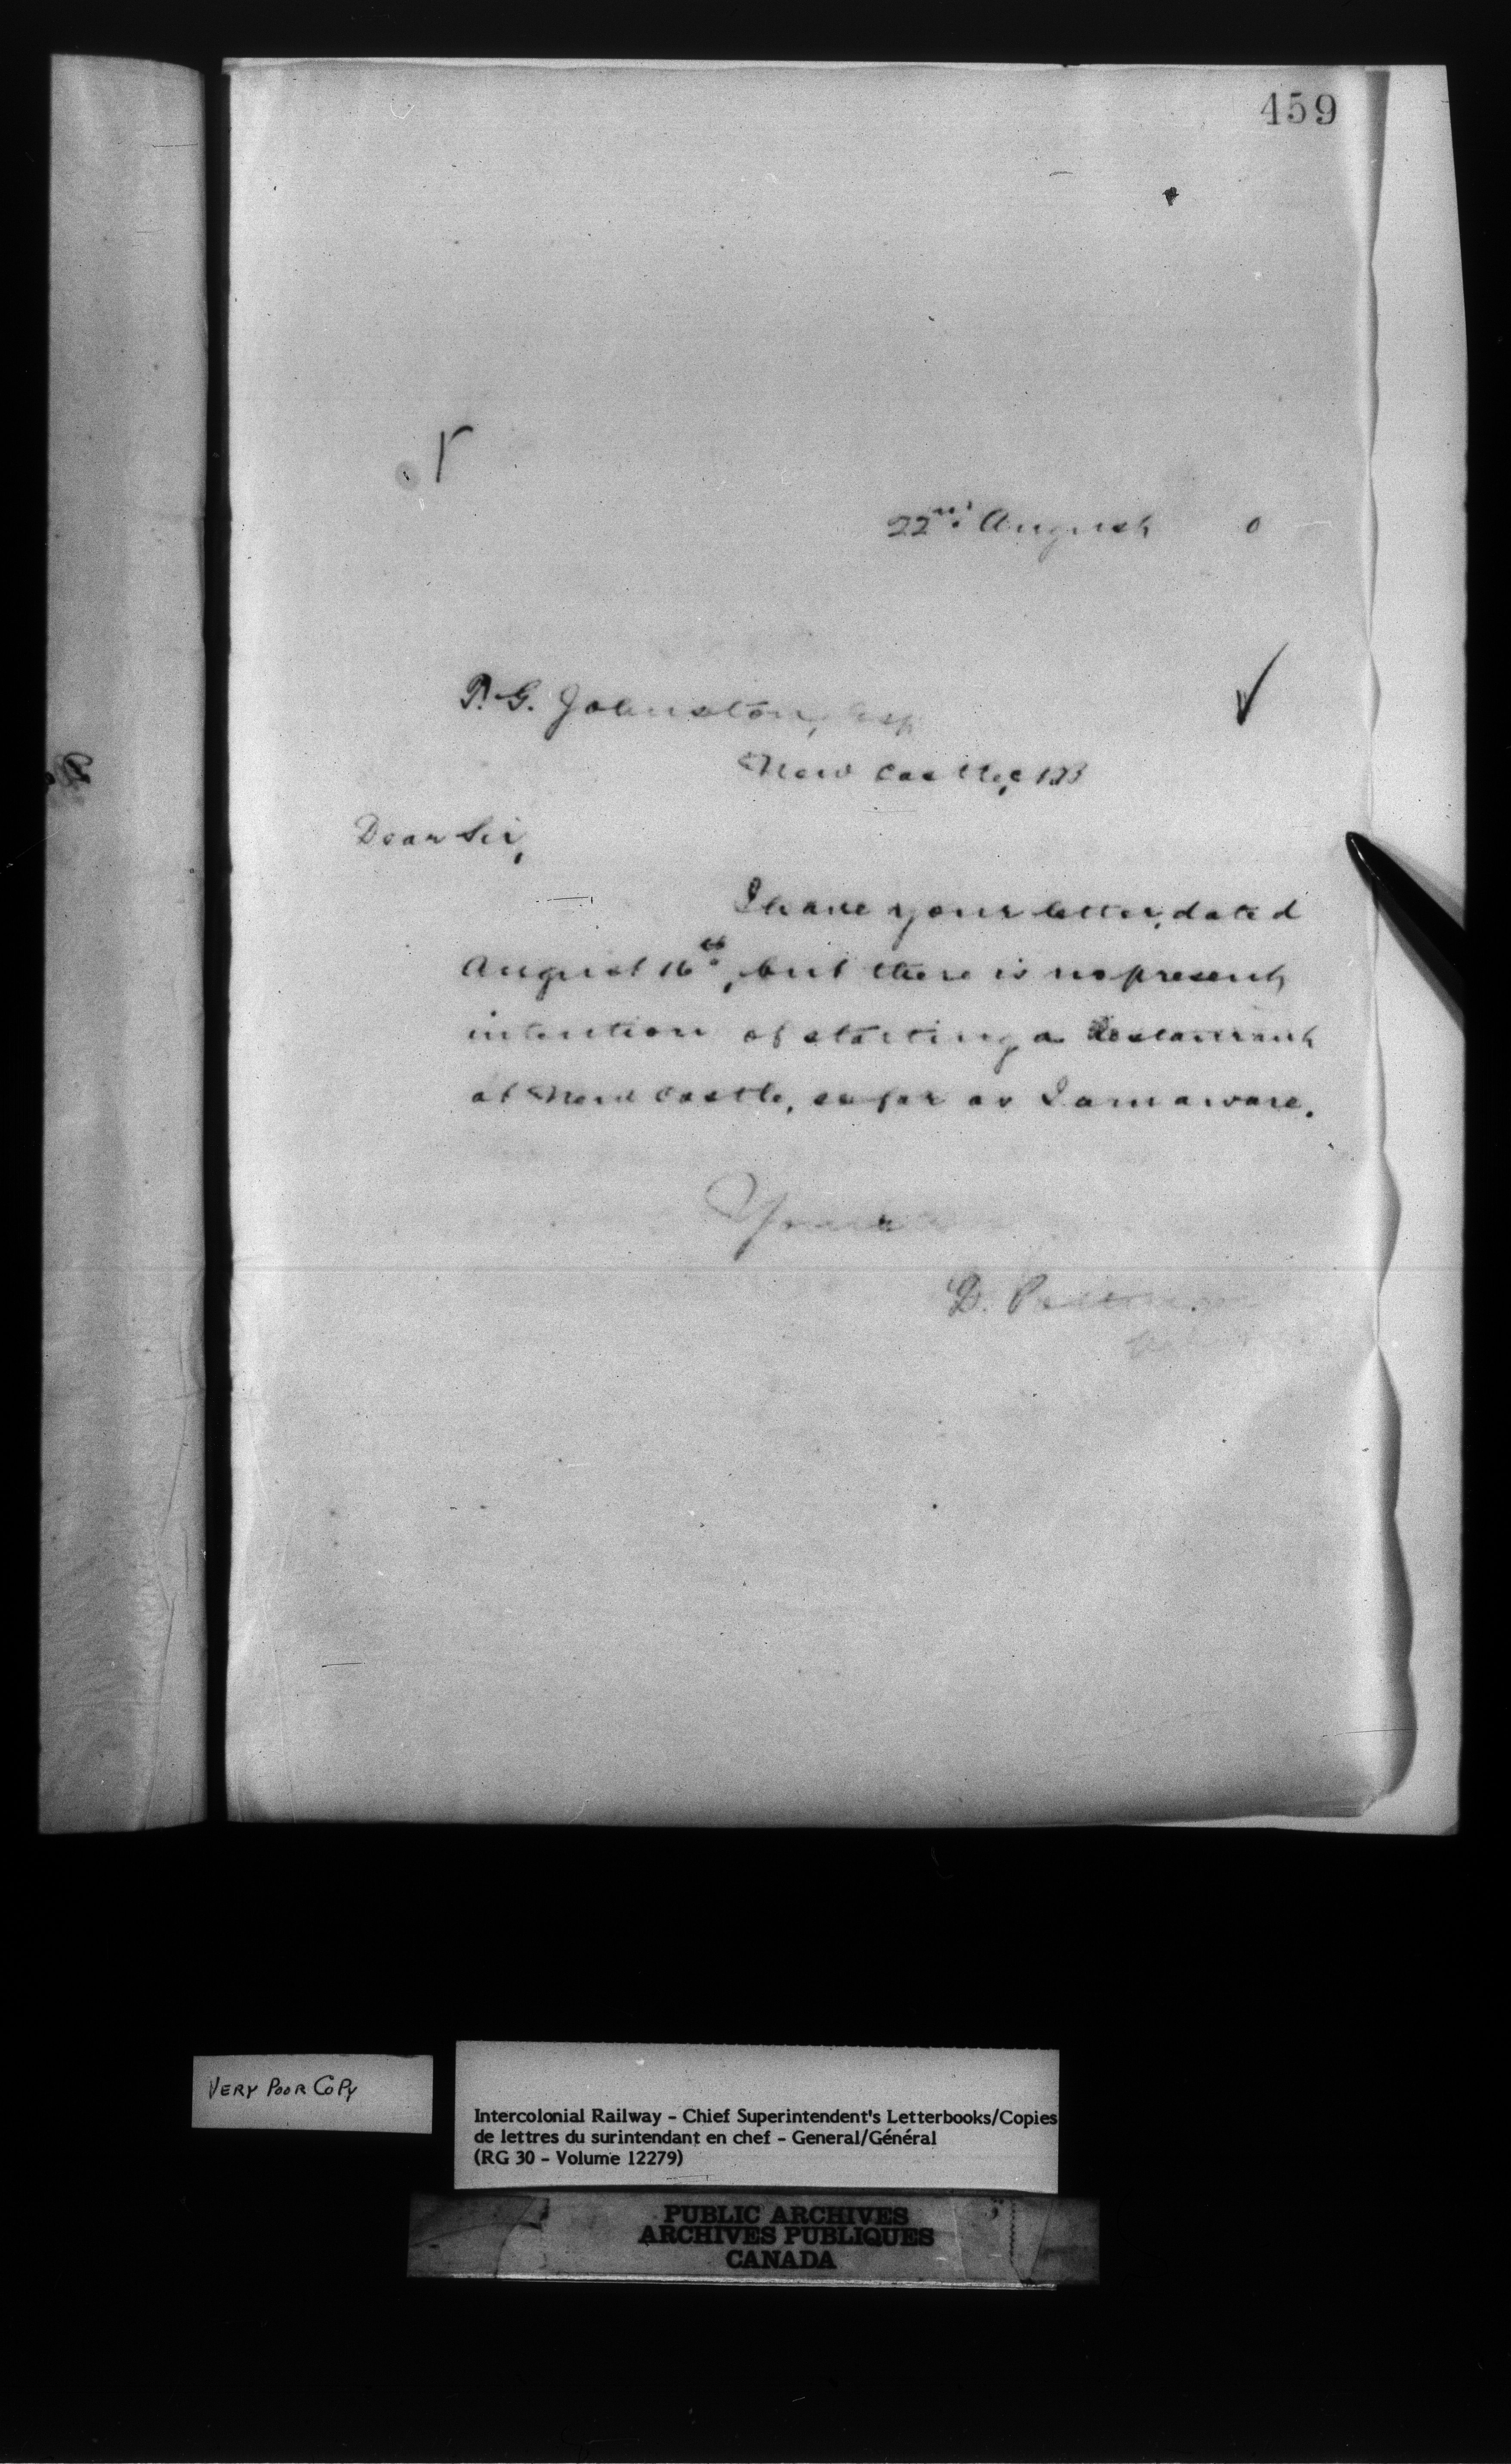 459
22nd August 0
P. G. Johnston, Esq
New Castle, NB
Dear Sir,
I have your letter, dated
August 16th, but there is no present
intention of starting a Restaurant
at New Castle, so far as I am aware.
Yours
D. Pottinger
VERY POOR COPY
Intercolonial Railway - Chief Superintendent's Letterbooks/Copies
de lettres du surintendant en chef - General/Général
(RG 30 - Volume 12279)
PUBLIC ARCHIVES
ARCHIVES PUBLIQUES
CANADA